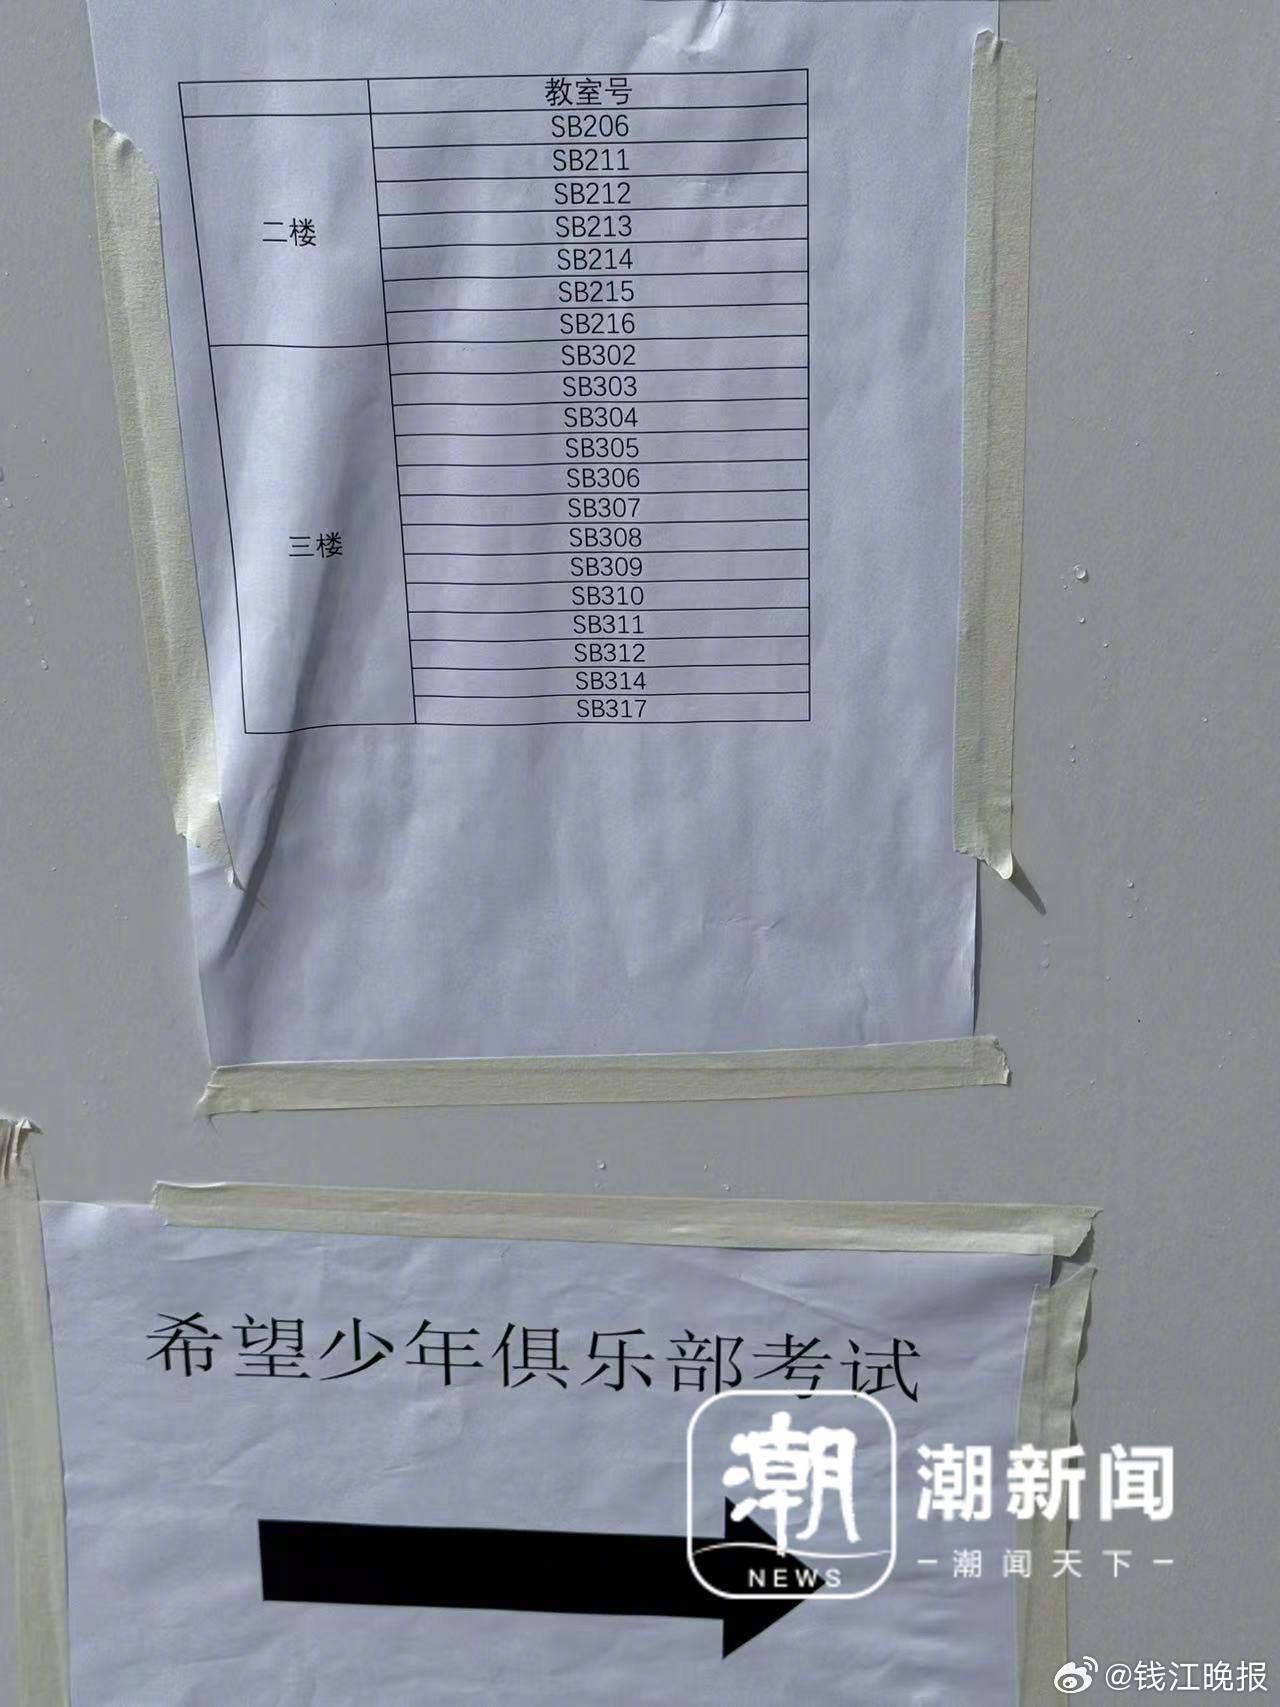 教室号
二楼
SB206
SB211
SB212
SB213
SB214
SB215
SB216
三楼
SB302
SB303
SB304
SB305
SB306
SB307
SB308
SB309
SB310
SB311
SB312
SB314
SB317
希望少年俱乐部考试
潮
NEWS
潮新闻
潮闻天下
@钱江晚报